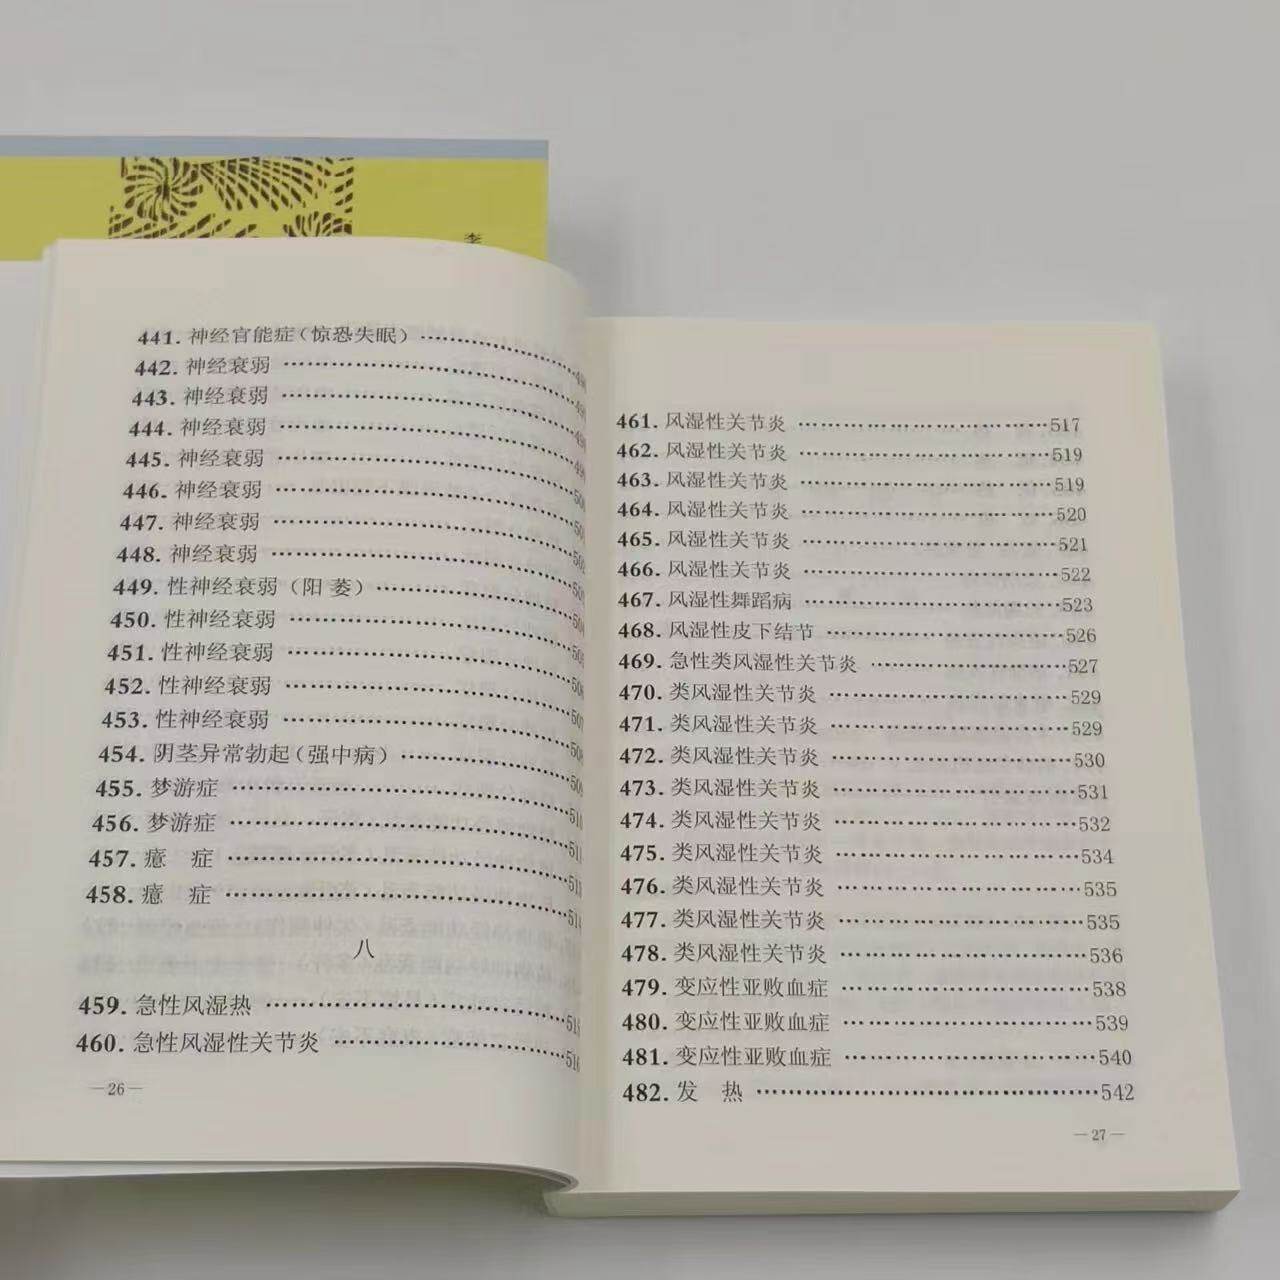 李
441. 神经官能症(惊恐失眠) ……………
442. 神经衰弱 ……………
443. 神经衰弱 ……………
444. 神经衰弱 ……………
445. 神经衰弱 ……………
446. 神经衰弱 ……………
447. 神经衰弱 ……………
448. 神经衰弱 ……………
449. 性神经衰弱(阳 萎) ……………
450. 性神经衰弱 ……………
451. 性神经衰弱 ……………
452. 性神经衰弱 ……………
453. 性神经衰弱 ……………
454. 阴茎异常勃起(强中病) ……………
455. 梦游症 ……………
456. 梦游症 ……………
457. 癔 症 ……………
458. 癔 症 ……………514
八
459. 急性风湿热 ……………
460. 急性风湿性关节炎 ……………516
—26—
461. 风湿性关节炎 ……………517
462. 风湿性关节炎 ……………519
463. 风湿性关节炎 ……………519
464. 风湿性关节炎 ……………520
465. 风湿性关节炎 ……………521
466. 风湿性关节炎 ……………522
467. 风湿性舞蹈病 ……………523
468. 风湿性皮下结节 ……………526
469. 急性类风湿性关节炎 ……………527
470. 类风湿性关节炎 ……………529
471. 类风湿性关节炎 ……………529
472. 类风湿性关节炎 ……………530
473. 类风湿性关节炎 ……………531
474. 类风湿性关节炎 ……………532
475. 类风湿性关节炎 ……………534
476. 类风湿性关节炎 ……………535
477. 类风湿性关节炎 ……………535
478. 类风湿性关节炎 ……………536
479. 变应性亚败血症 ……………538
480. 变应性亚败血症 ……………539
481. 变应性亚败血症 ……………540
482. 发 热 ……………542
—27—